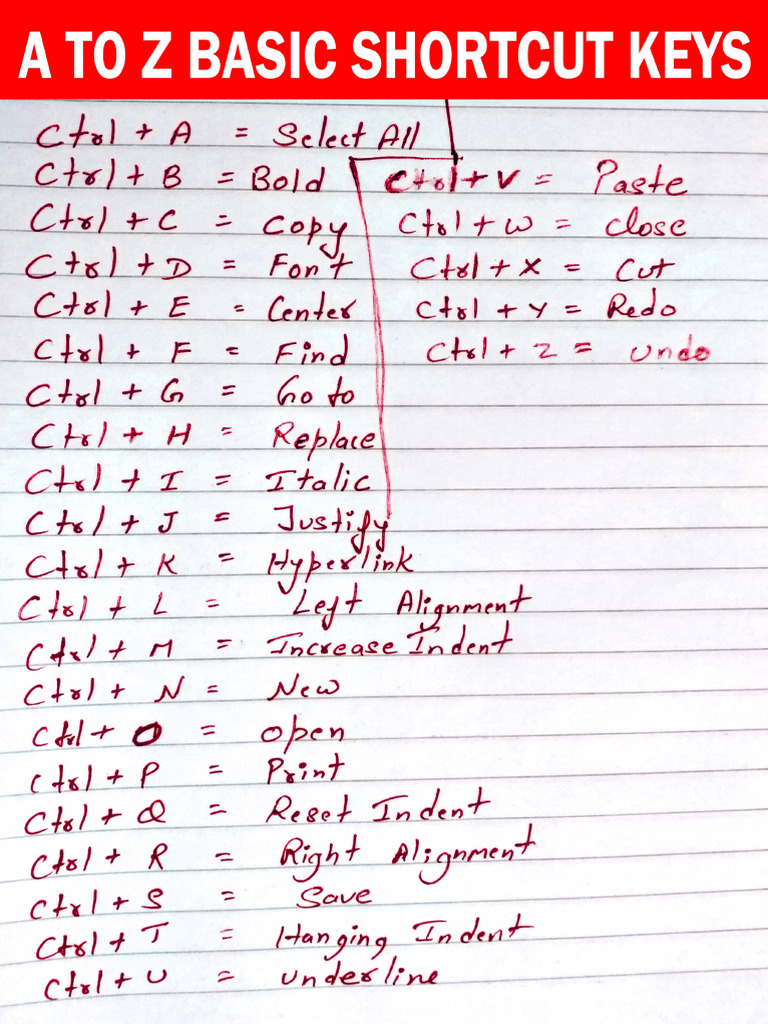 A TO Z BASIC SHORTCUT KEYS
Ctrl + A = Select All
Ctrl + B = Bold
Ctrl + C = Copy
Ctrl + D = Font
Ctrl + E = Center
Ctrl + F = Find
Ctrl + G = Go to
Ctrl + H = Replace
Ctrl + I = Italic
Ctrl + J = Justify
Ctrl + K = Hyperlink
Ctrl + L = Left Alignment
Ctrl + M = Increase Indent
Ctrl + N = New
Ctrl + O = open
Ctrl + P = Print
Ctrl + Q = Reset Indent
Ctrl + R = Right Alignment
Ctrl + S = Save
Ctrl + T = Hanging Indent
Ctrl + U = underline
Ctrl + V = Paste
Ctrl + W = close
Ctrl + X = Cut
Ctrl + Y = Redo
Ctrl + Z = undo